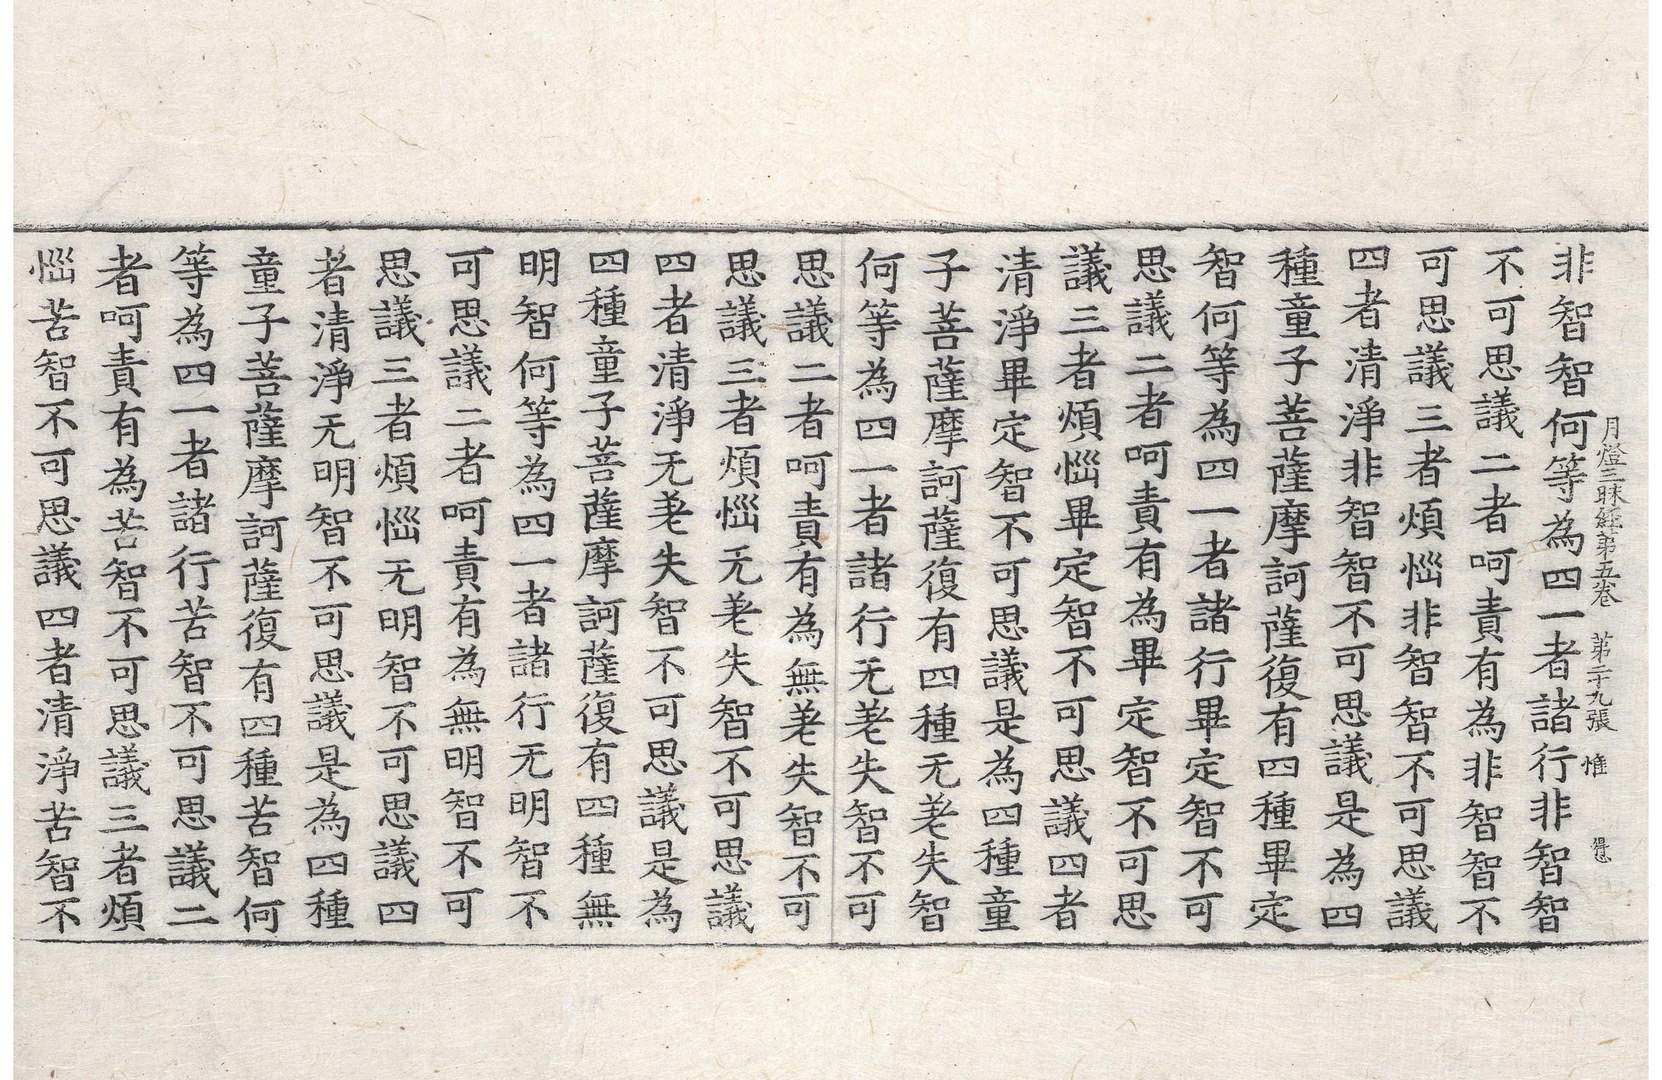 月燈三昧経第五卷 第二十九張 惟
非智智何等為四一者諸行非智智
不可思議二者呵責有為非智智不
可思議三者煩惱非智智不可思議
四者清淨非智智不可思議是為四
種童子菩薩摩訶薩復有四種畢定
智何等為四一者諸行畢定智不可
思議二者呵責有為畢定智不可思
議三者煩惱畢定智不可思議四者
清淨畢定智不可思議是為四種童
子菩薩摩訶薩復有四種无差失智
何等為四一者諸行无差失智不可
思議二者呵責有為無差失智不可
思議三者煩惱无差失智不可思議
四者清淨无差失智不可思議是為
四種童子菩薩摩訶薩復有四種無
明智何等為四一者諸行无明智不
可思議二者呵責有為無明智不可
思議三者煩惱无明智不可思議四
者清淨无明智不可思議是為四種
童子菩薩摩訶薩復有四種苦智何
等為四一者諸行苦智不可思議二
者呵責有為苦智不可思議三者煩
惱苦智不可思議四者清淨苦智不